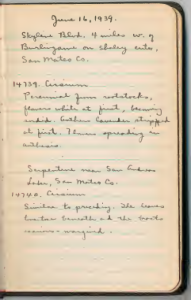 June 16, 1939.
Skyline Blvd. 4 miles w. of
Burlingame on shaley cuts,
San Mateo Co.
14739. Cirsium
Perennial from rootstocks,
flowers white at first,
Anthers lavender striped
at first. Flowers spreading in
anthesis.
Serpentine near San Andreas
Lake, San Mateo Co.
14740. Cirsium
Similar to preceding. The leaves
beneath and the